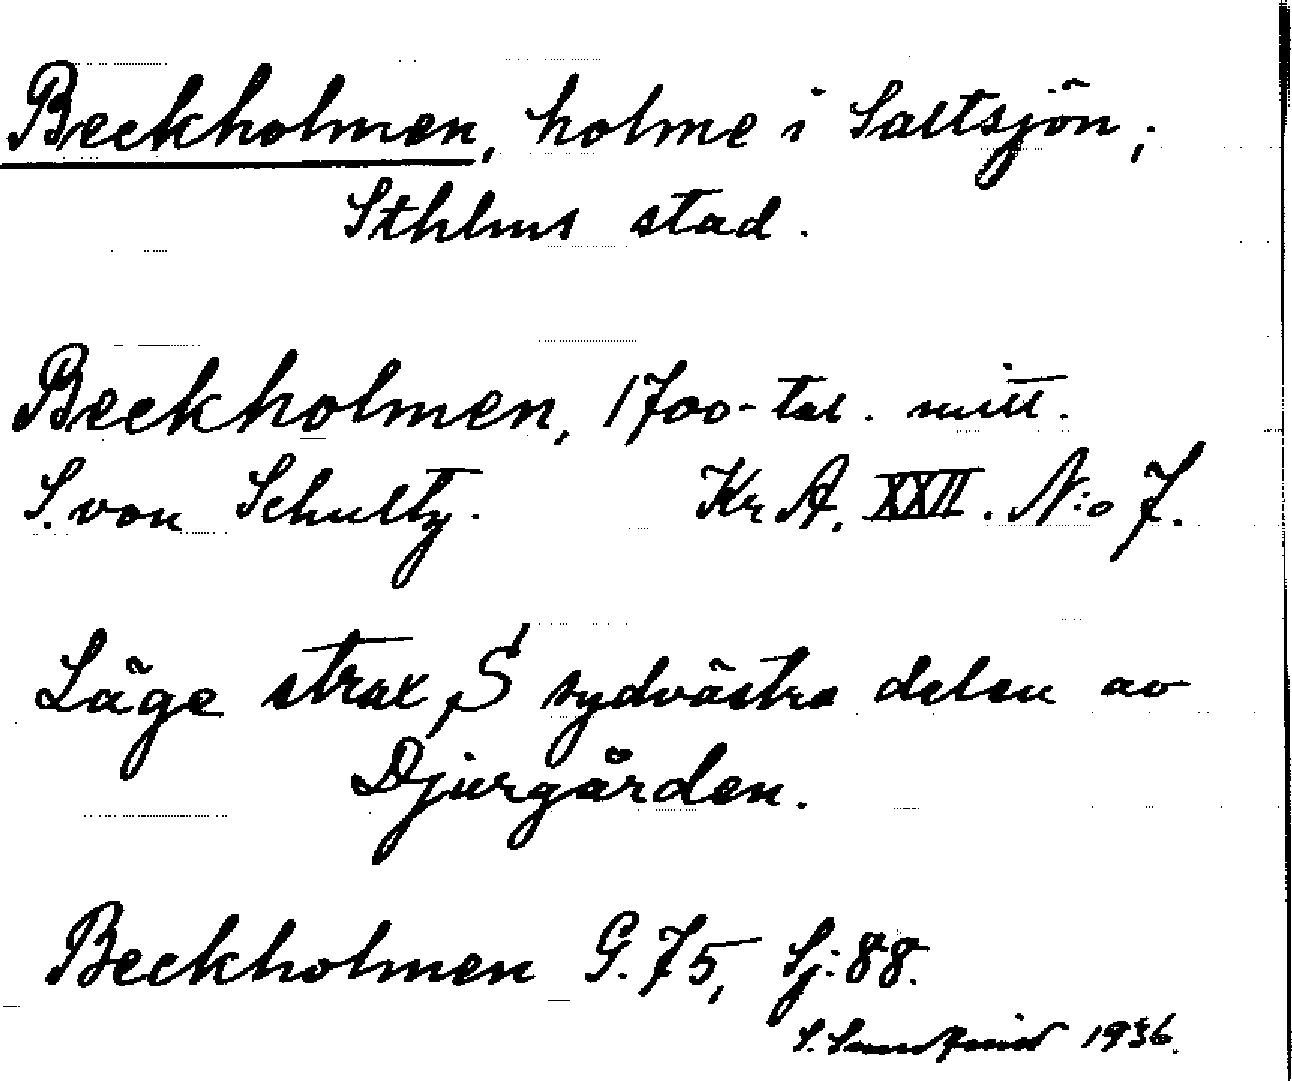 Beckholmen, holme i Saltsjön,
Sthlms stad.
Beckholmen, 1700-tal. mitt.
S. von Schultz. Kr A. XXII. N:o 7.
Läge strax S sydvästra delen av
Djurgården.
Beckholmen G. 75, Sj: 88.
S. 1936.